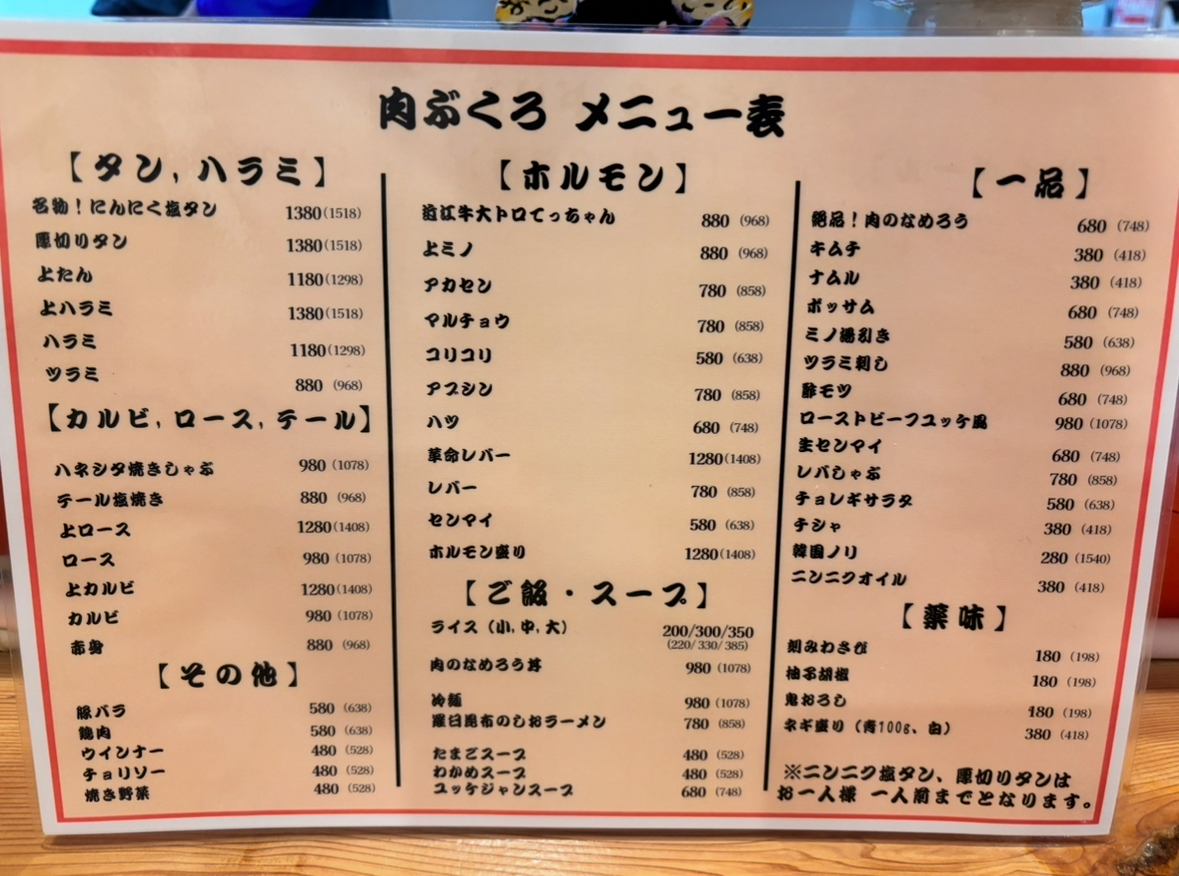 肉ぶくろ メニュー表
【タン,ハラミ】
名物！にんにく塩タン 1380(1518)
厚切りタン 1380(1518)
上たん 1180(1298)
上ハラミ 1380(1518)
ハラミ 1180(1298)
ツラミ 880 (968)
【カルビ,ロース,テール】
ハネシタ焼きしゃぶ 980 (1078)
テール塩焼き 880 (968)
上ロース 1280(1408)
ロース 980 (1078)
上カルビ 1280(1408)
カルビ 980 (1078)
赤身 880 (968)
【その他】
豚バラ 580 (638)
鶏肉 580 (638)
ウインナー 480 (528)
チョリソー 480 (528)
焼き野菜 480 (528)
【ホルモン】
近江牛大トロてっちゃん 880 (968)
上ミノ 880 (968)
アカセン 780 (858)
マルチョウ 780 (858)
コリコリ 580 (638)
アブシン 780 (858)
ハツ 680 (748)
革命レバー 1280(1408)
レバー 780 (858)
センマイ 580 (638)
ホルモン盛り 1280(1408)
【ご飯・スープ】
ライス（小,中,大） 200/300/350
(220/330/385)
肉のなめろう丼 980 (1078)
冷麺 980 (1078)
羅臼昆布のしおラーメン 780 (858)
たまごスープ 480 (528)
わかめスープ 480 (528)
ユッケジャンスープ 680 (748)
【一品】
絶品！肉のなめろう 680 (748)
キムチ 380 (418)
ナムル 380 (418)
ポッサム 680 (748)
ミノ湯引き 580 (638)
ツラミ刺し 880 (968)
酢モツ 680 (748)
ローストビーフユッケ風 980 (1078)
生センマイ 680 (748)
レバしゃぶ 780 (858)
チョレギサラダ 580 (638)
チシャ 380 (418)
韓国ノリ 280 (1540)
ニンニクオイル 380 (418)
【薬味】
刻みわさび 180 (198)
柚子胡椒 180 (198)
鬼おろし 180 (198)
ネギ盛り（青100g、白） 380 (418)
※ニンニク塩タン、厚切りタンは
お一人様 一人前までとなります。